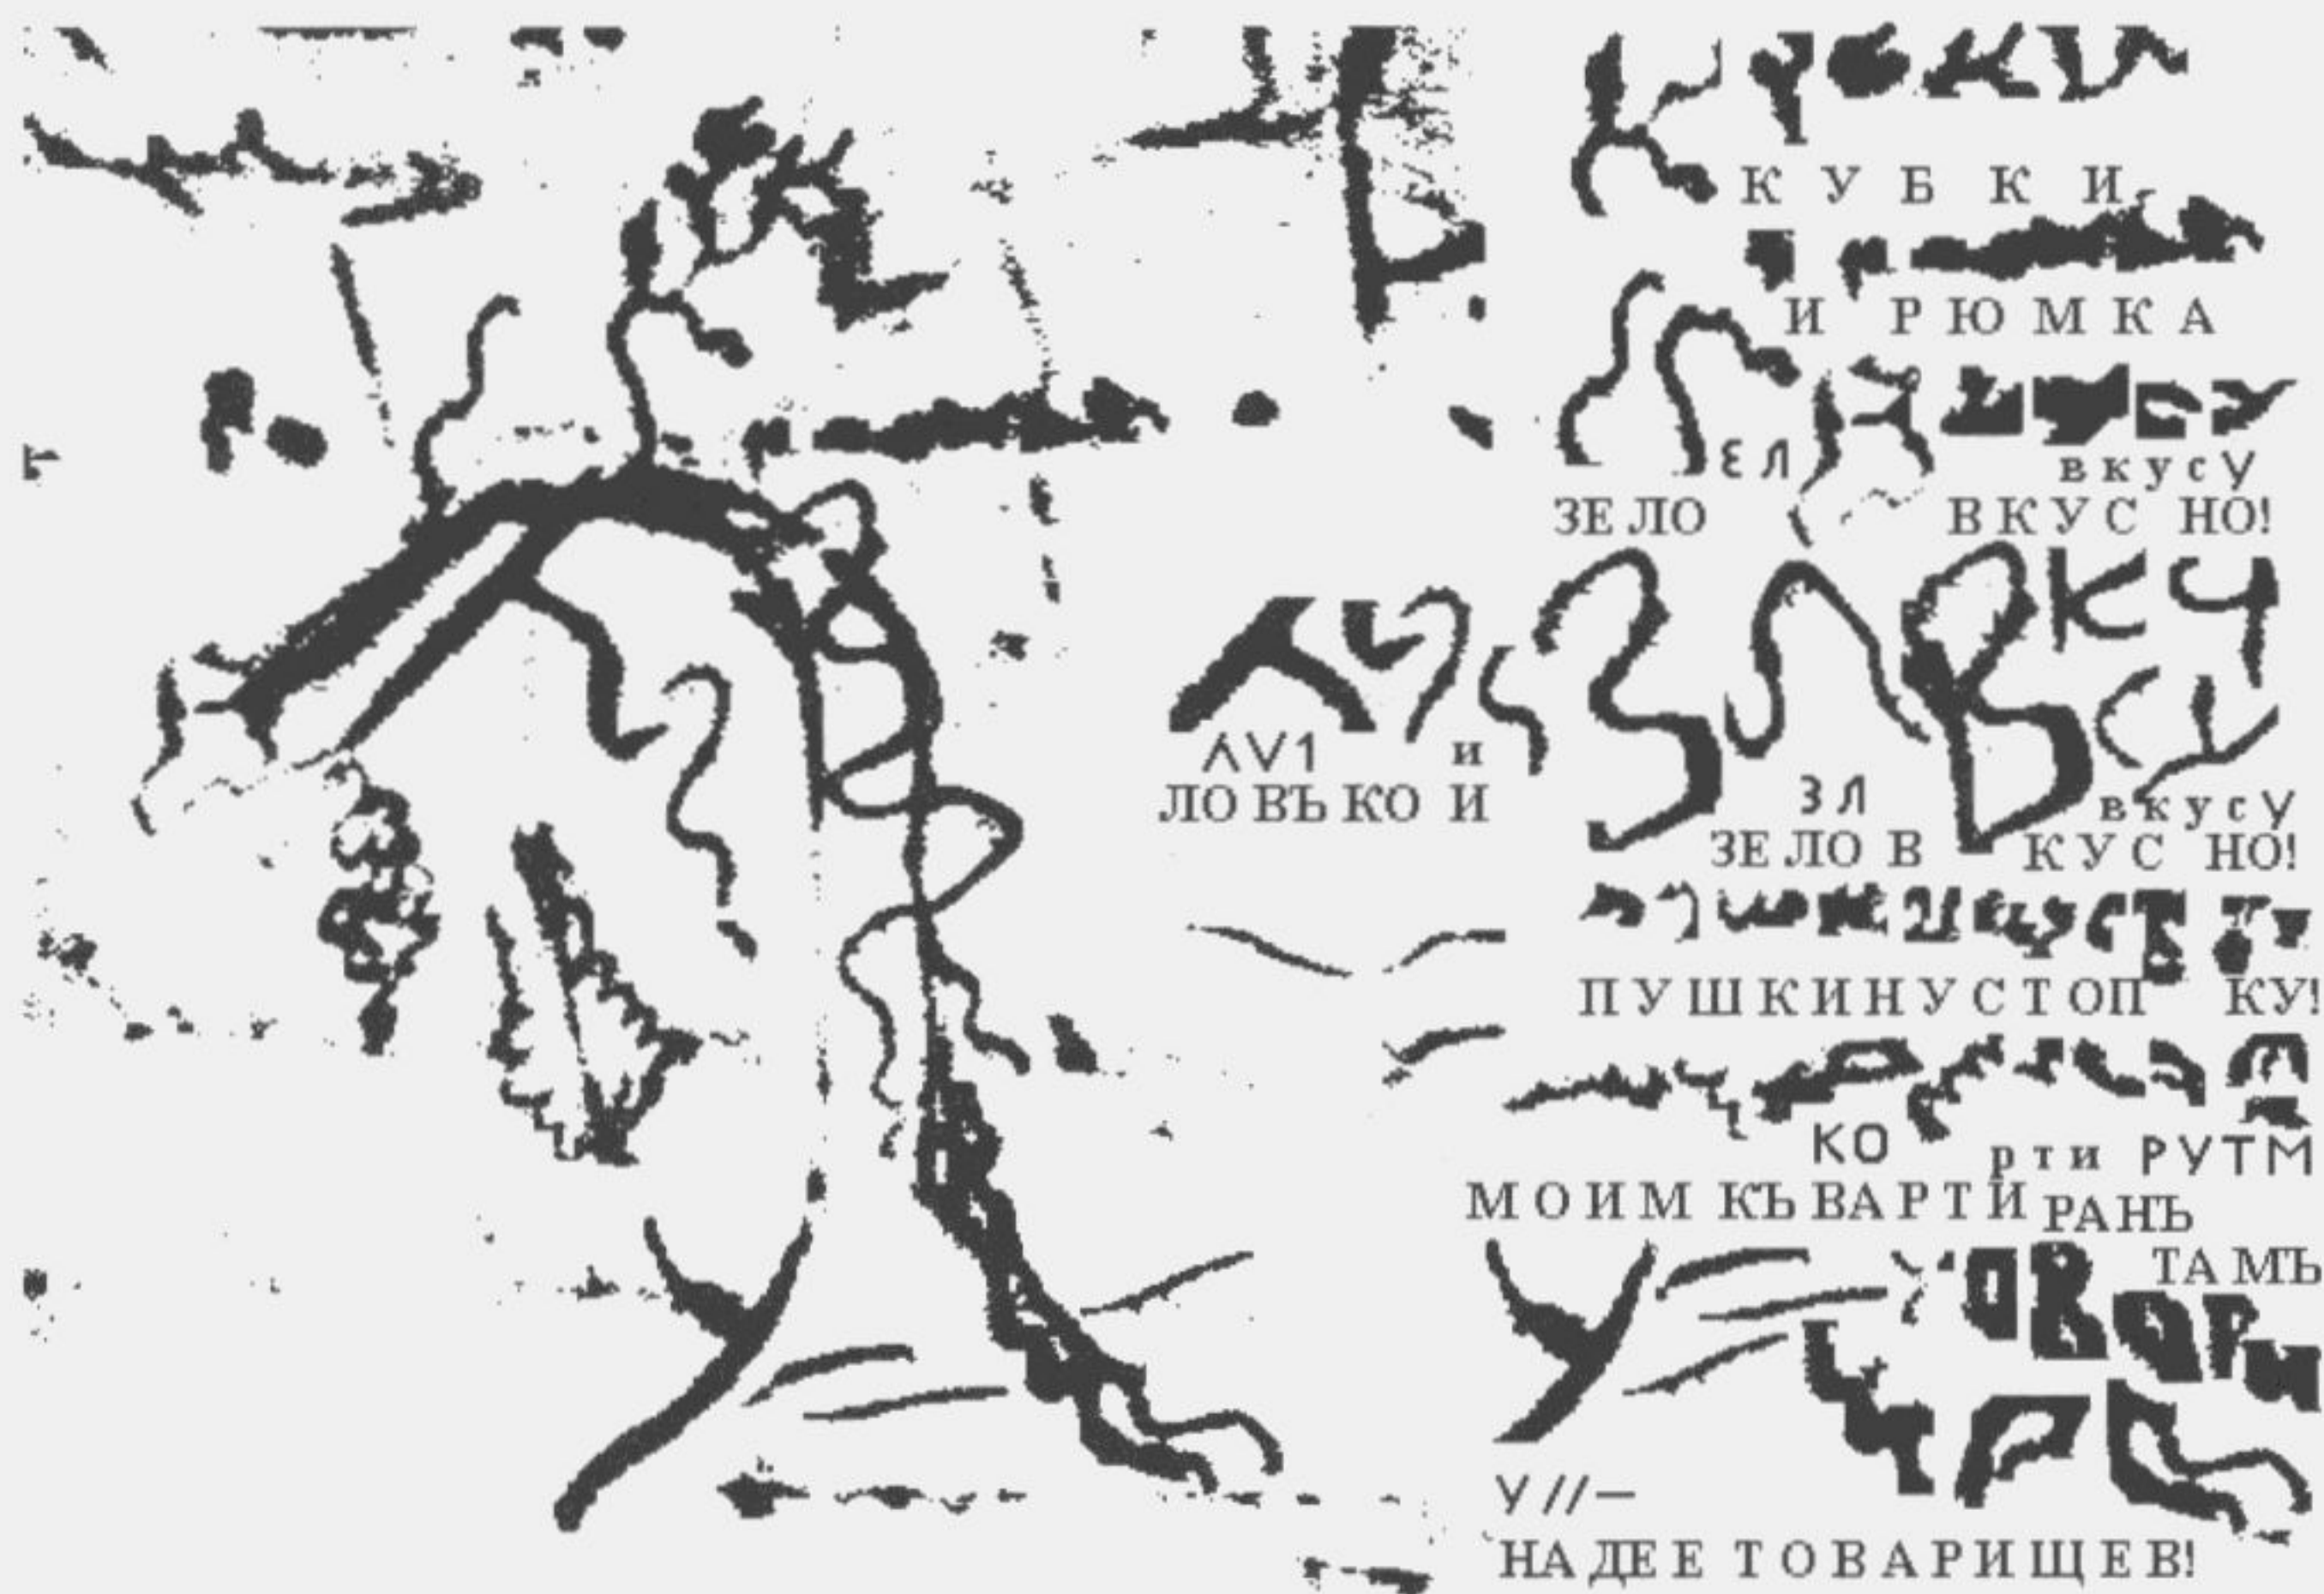 К У Б К И
И Р Ю М К А
ЕЛ вкусу
ЗЕЛО ВКУС НО!
ΛV1 и
ЛО ВЪ КО И
ЗЛ вкусу
ЗЕЛО В КУС НО!
ПУШКИНУ СТОП КУ!
КО рти РУТМ
МОИМ КЪ ВАРТИ РАНЪ
ТА МЪ
У //—
НАДЕЕ ТОВАРИЩЕВ!